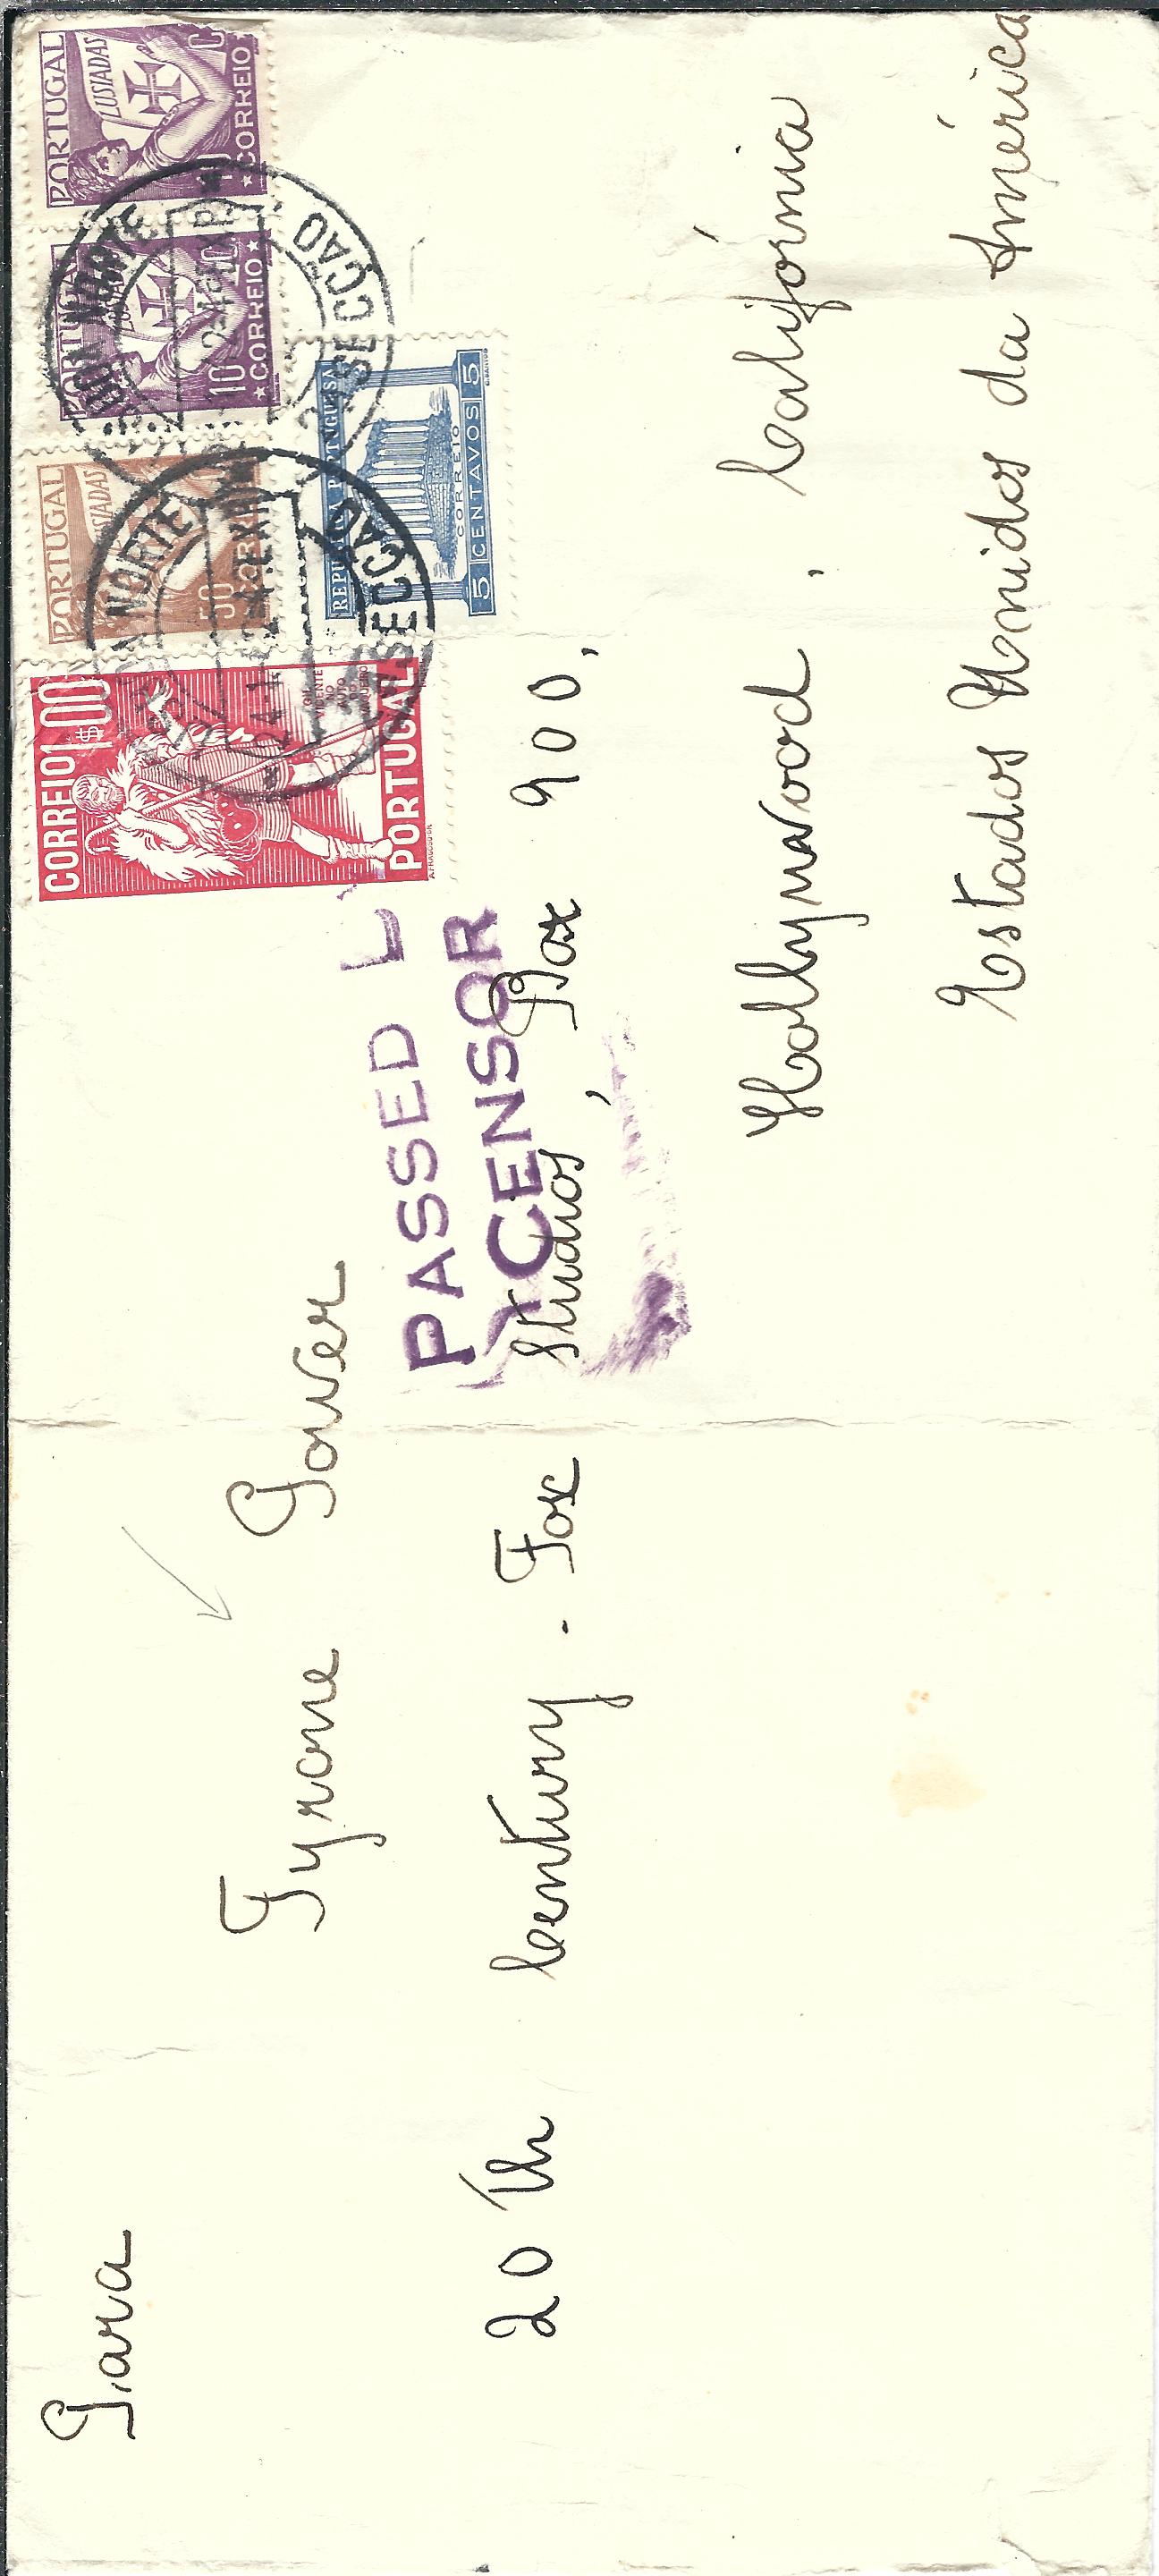 Para
Tyrone Power
20 th Century - Fox Studios, Box 900,
Hollywood, Califórnia
Estados Unidos da América
PASSED
CENSOR
CORREIO 1$00
GIL
VICENTE
NO
AUTO
PORTUGAL
PORTUGAL
LUSIADAS
50 C
CORREIO
PORTUGAL
LUSIADAS
10 C
CORREIO
PORTUGAL
LUSIADAS
10 C
CORREIO
REPUBLICA PORTUGUESA
CORREIO
5 CENTAVOS 5
NORTE
2ª SECCÃO
NORTE
SECCÃO